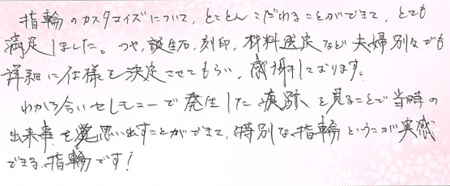 指輪のカスタマイズについて、とことんこだわることができて、とても
満足しました。つや、誕生石、刻印、材料選定など夫婦別々でも
詳細に仕様を決定させてもらい、感謝しております。
わかち合いセレモニーで発生した痕跡を見ることで当時の
出来事を思い出すことができて、特別な指輪というのが実感
できる指輪です!